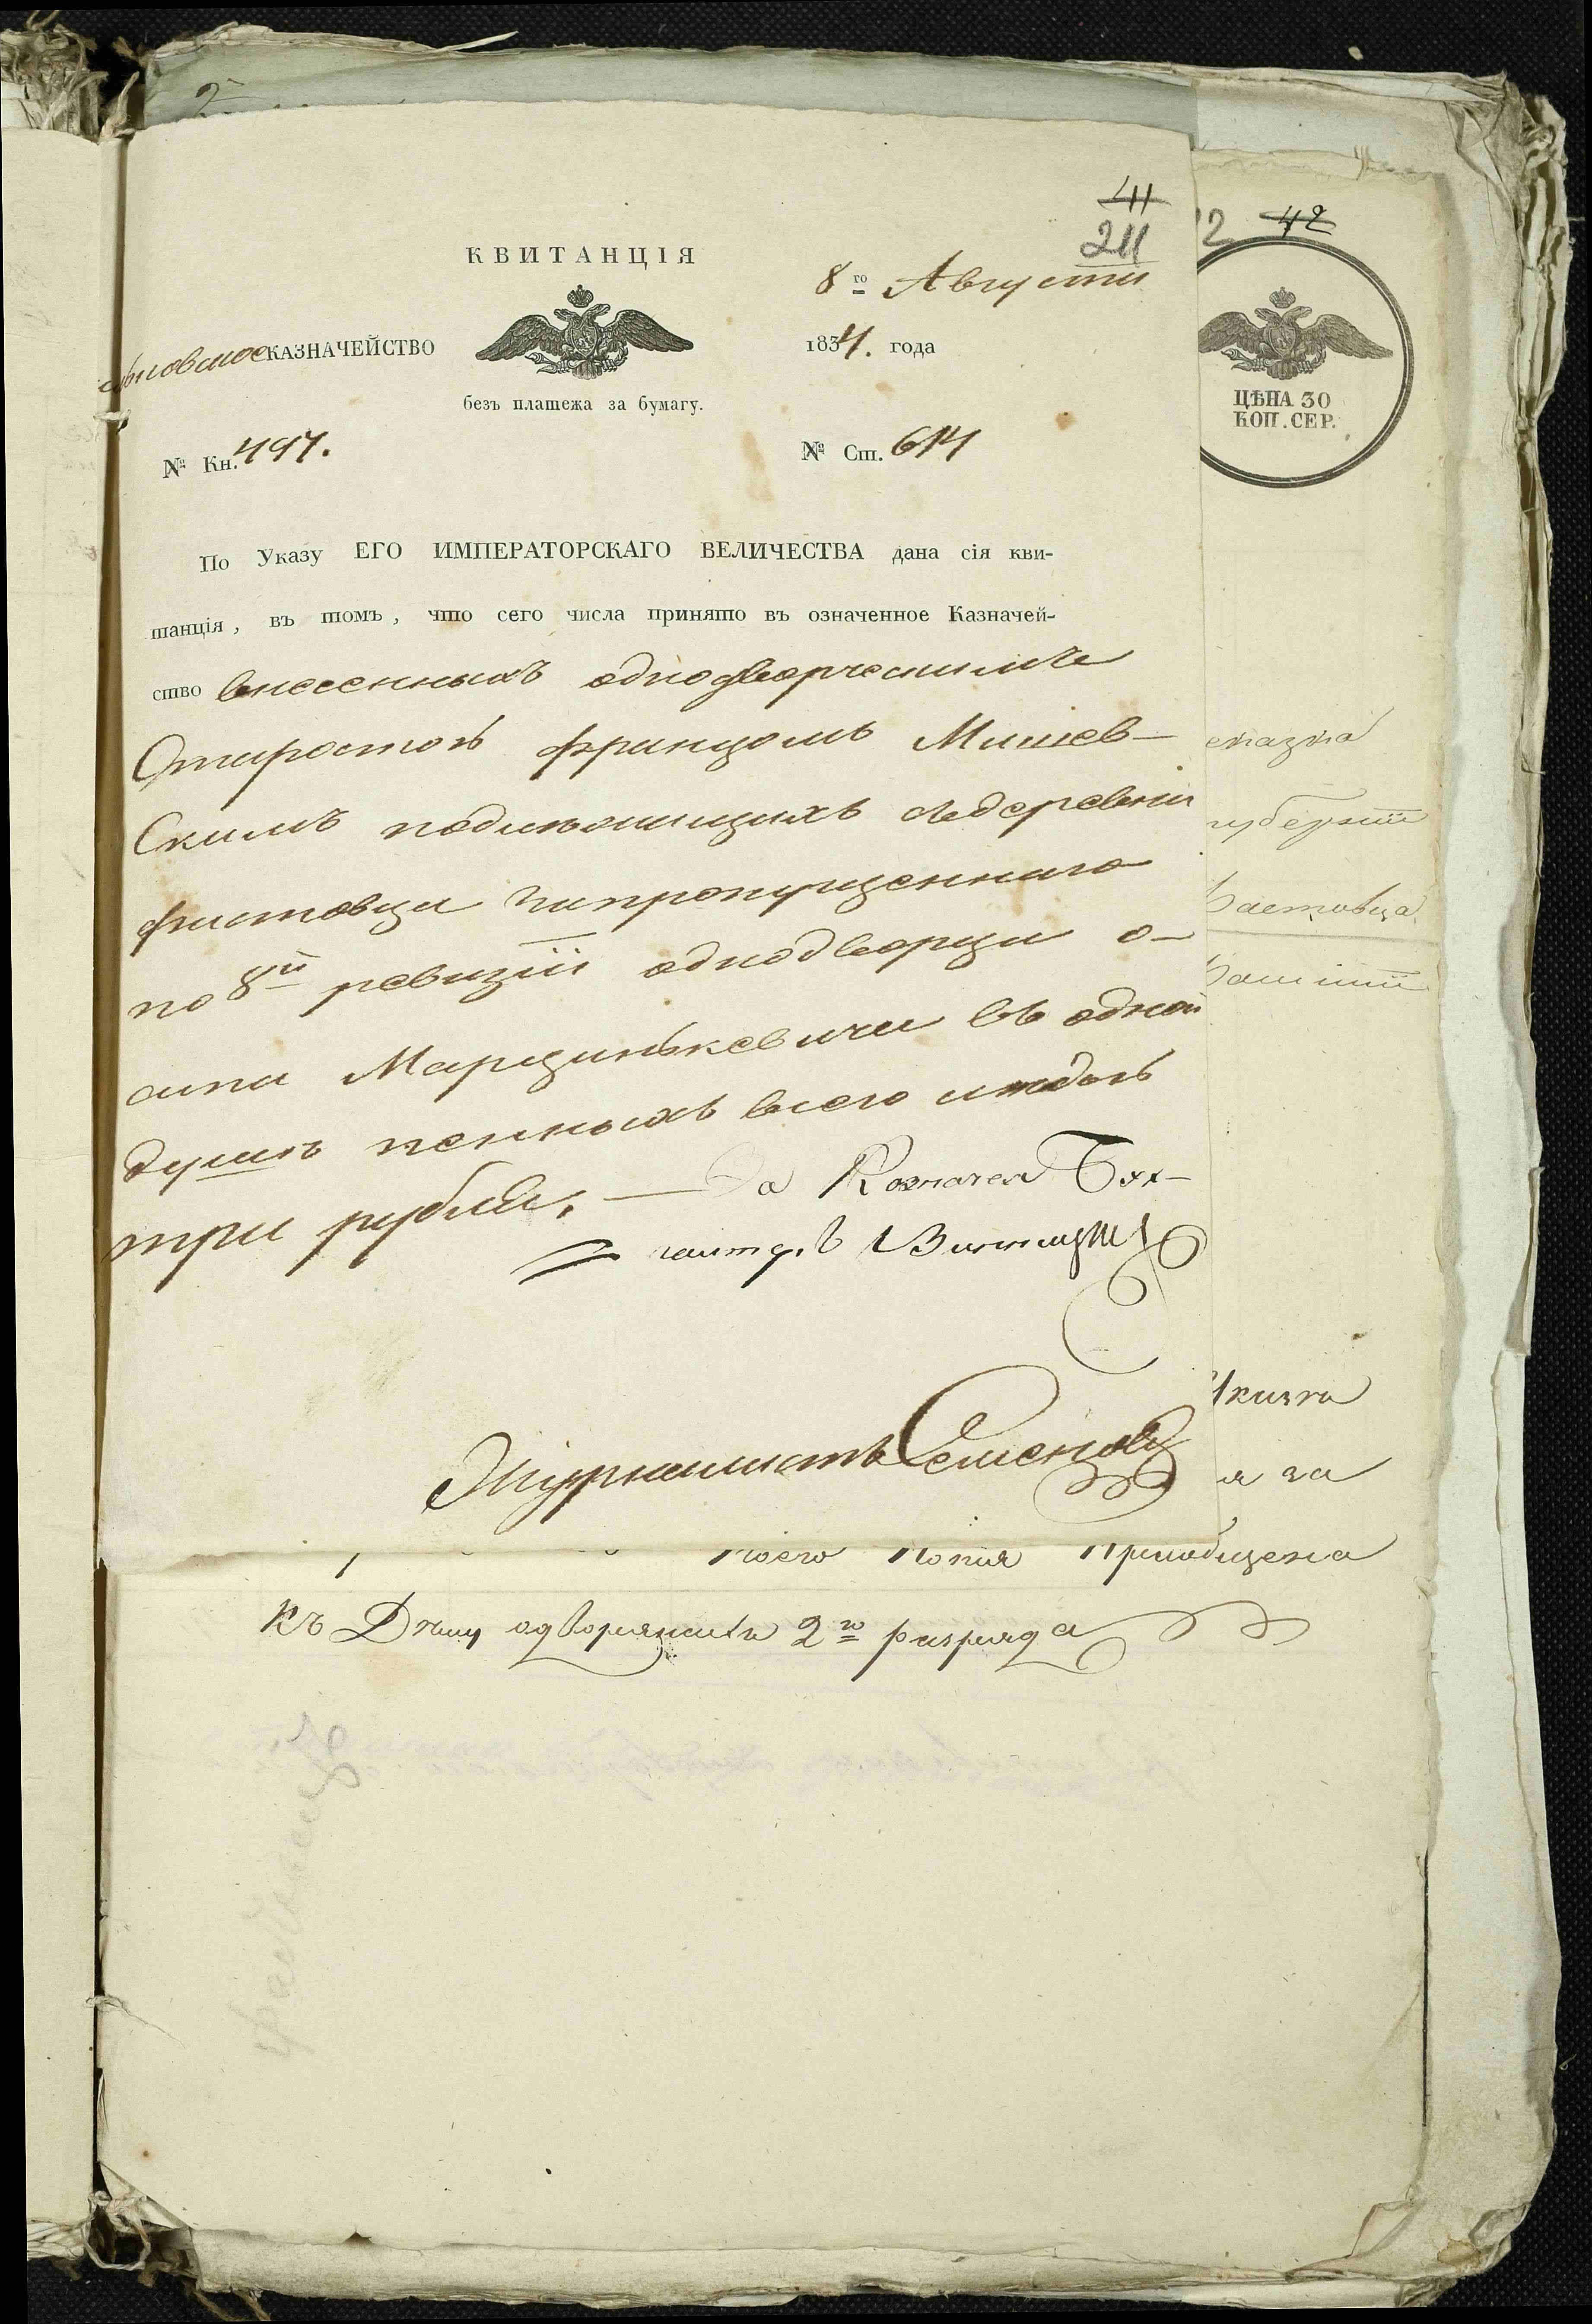 41
211
42
КВИТАНЦІЯ
8го Августа
КАЗНАЧЕЙСТВО
1834. года
безъ платежа за бумагу.
ЦѢНА 30
КОП. СЕР.
№ Кн. 497.
№ Ст. 614
По Указу ЕГО ИМПЕРАТОРСКАГО ВЕЛИЧЕСТВА дана сія кви-
танція, въ томъ, что сего числа принято въ означенное Казначей-
ство внесенныхъ однодворческимъ
Старостою Францомъ Мишев-
скимъ подлежащихъ съ деревни
Фастовца за пропущеннаго
по 8й ревизіи однодворца О-
сипа Марцинкевича въ одной
душѣ пенныхъ всего
три рубли. — За Казначея Бух-
галтеръ Винницкій
Журналистъ Семеновъ
сказка
губерніи
Фастовца
я за
Копія Приобщена
къ Дѣлу одворянахъ 2го разряда